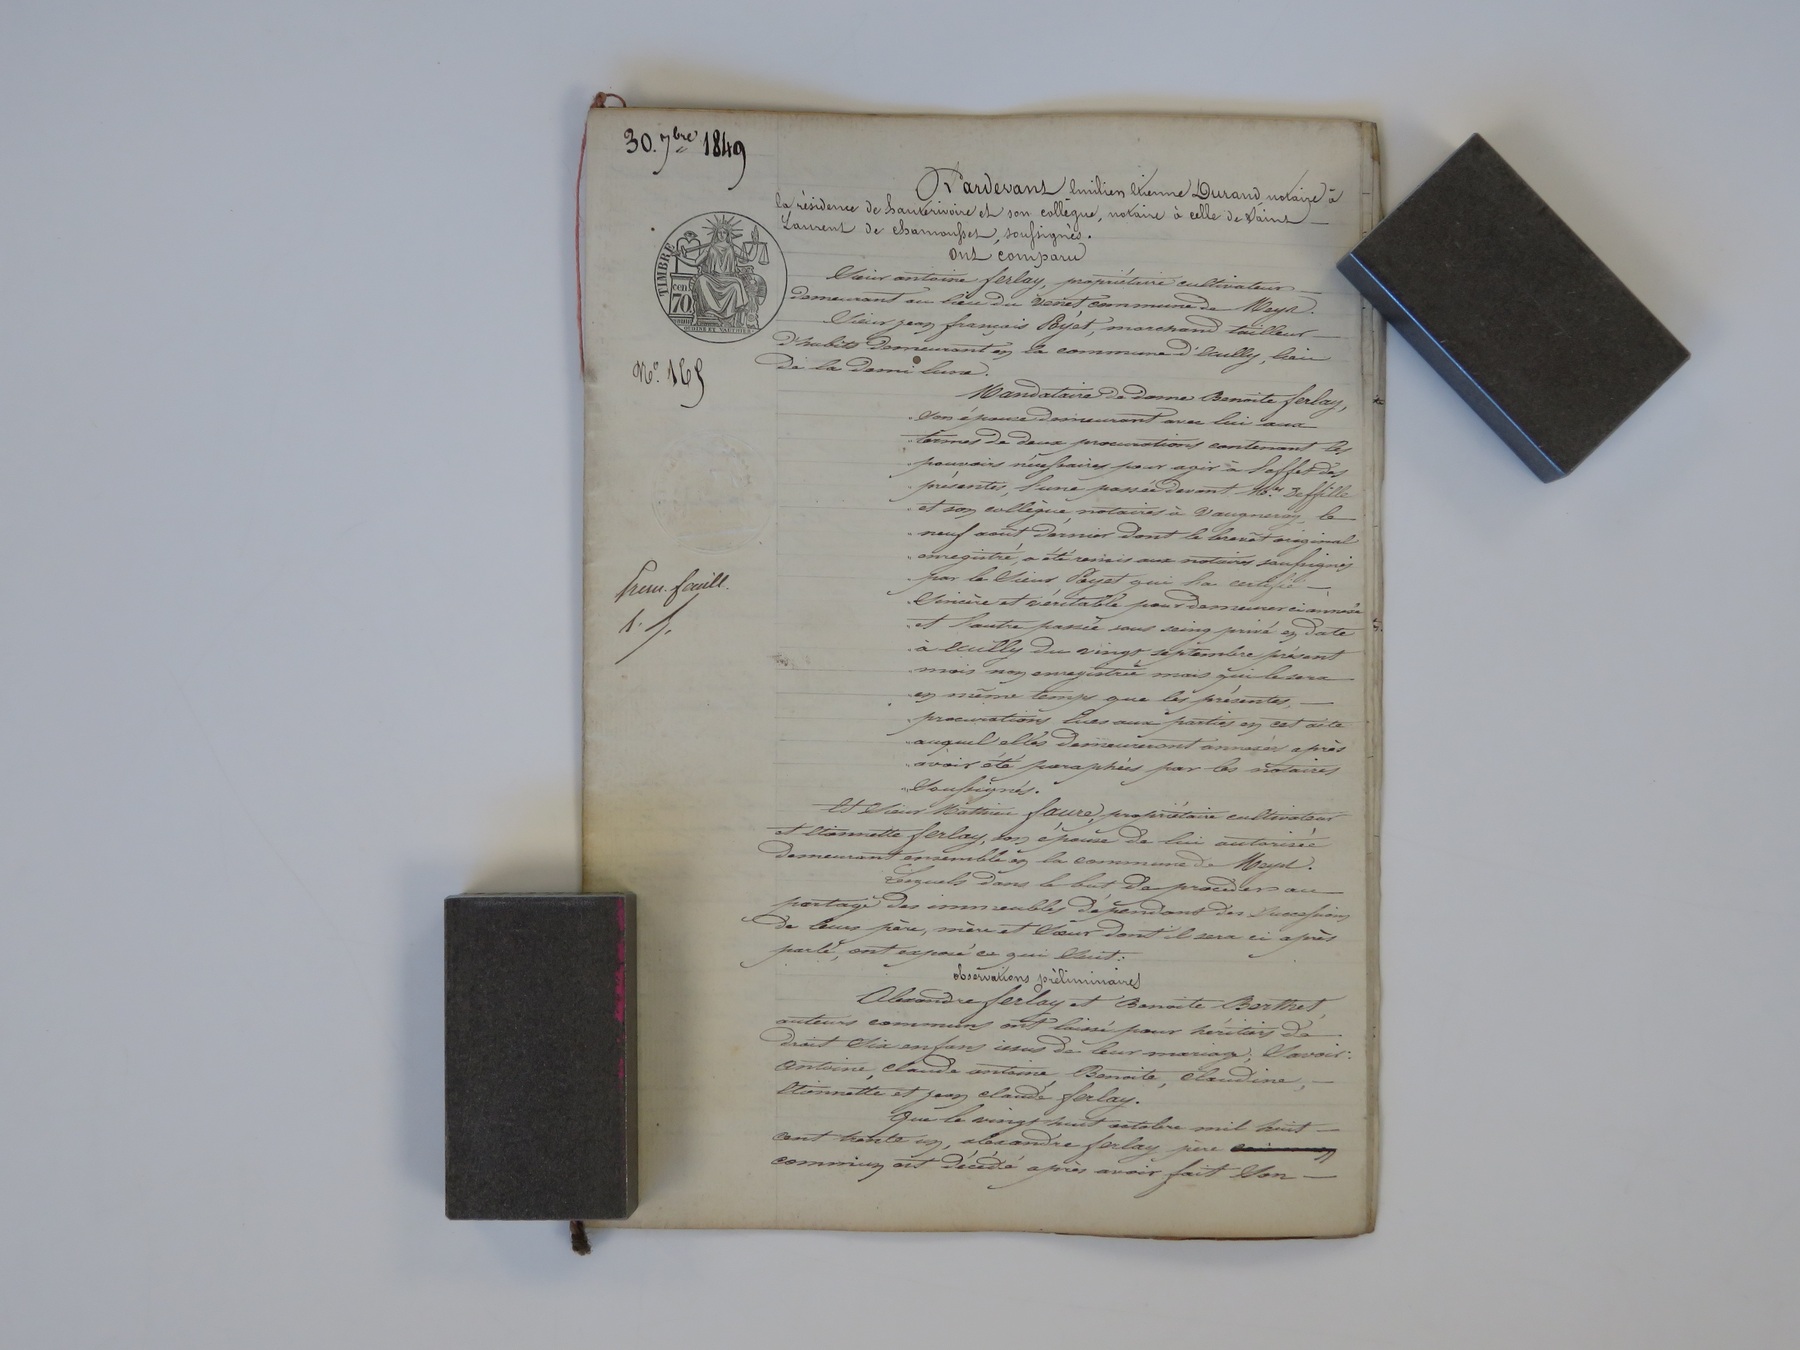 30. 7bre 1849
Pardevant Emilien Etienne Durand, notaire à
la résidence de hauterivoire et son collègue, notaire à celle de Saint
Laurent de chamousset, soussignés.
Ont comparu
TIMBRE
cen
70
Sieur antoine ferlay, propriétaire cultivateur
demeurant au lieu du venet, commune de Meys.
Sieur jean françois Pijet, marchand tailleur
d'habits demeurant en la commune d'écully, lieu
de la demi lune.
N°. 165
Mandataire de dame Benoîte ferlay,
son épouse demeurant avec lui aux
termes de deux procurations contenant les
pouvoirs nécessaires pour agir à l'effet des
présentes, l'une passée devant
et son collègue notaires à Vaugneray, le
neuf août dernier dont le brevet original
enregistré, a été remis aux notaires soussignés
par le Sieur Pijet qui l'a certifié
Sincère et véritable pour demeurer ci annexé
et l'autre passée sous seing privé en date
à écully du vingt septembre présent
mois non enregistrée mais qui le sera
en même temps que les présentes,
procurations lues aux parties en cet acte
auquel elles demeureront annexées après
avoir été paraphées par les notaires
Soussignés.
prem. feuill.
Et Sieur Mathieu faure, propriétaire cultivateur
et Etiennette ferlay, son épouse de lui autorisée
demeurant ensemble en la commune de Meys.
Lesquels dans le but de procéder au
partage des immeubles dépendant des successions
de leurs père, mère et Sœur dont il sera ci après
parlé, ont exposé ce qui Suit:
observations préliminaires
Alexandre ferlay et Benoîte Berthet,
auteurs communs ont laissé pour héritiers de
droit Six enfans issus de leur mariage, Savoir:
Antoine, claude antoine, Benoîte, claudine,
Etiennette et jean claude ferlay.
Que le vingt huit octobre mil huit
cent trente un, alexandre ferlay père
commun est décédé après avoir fait Son